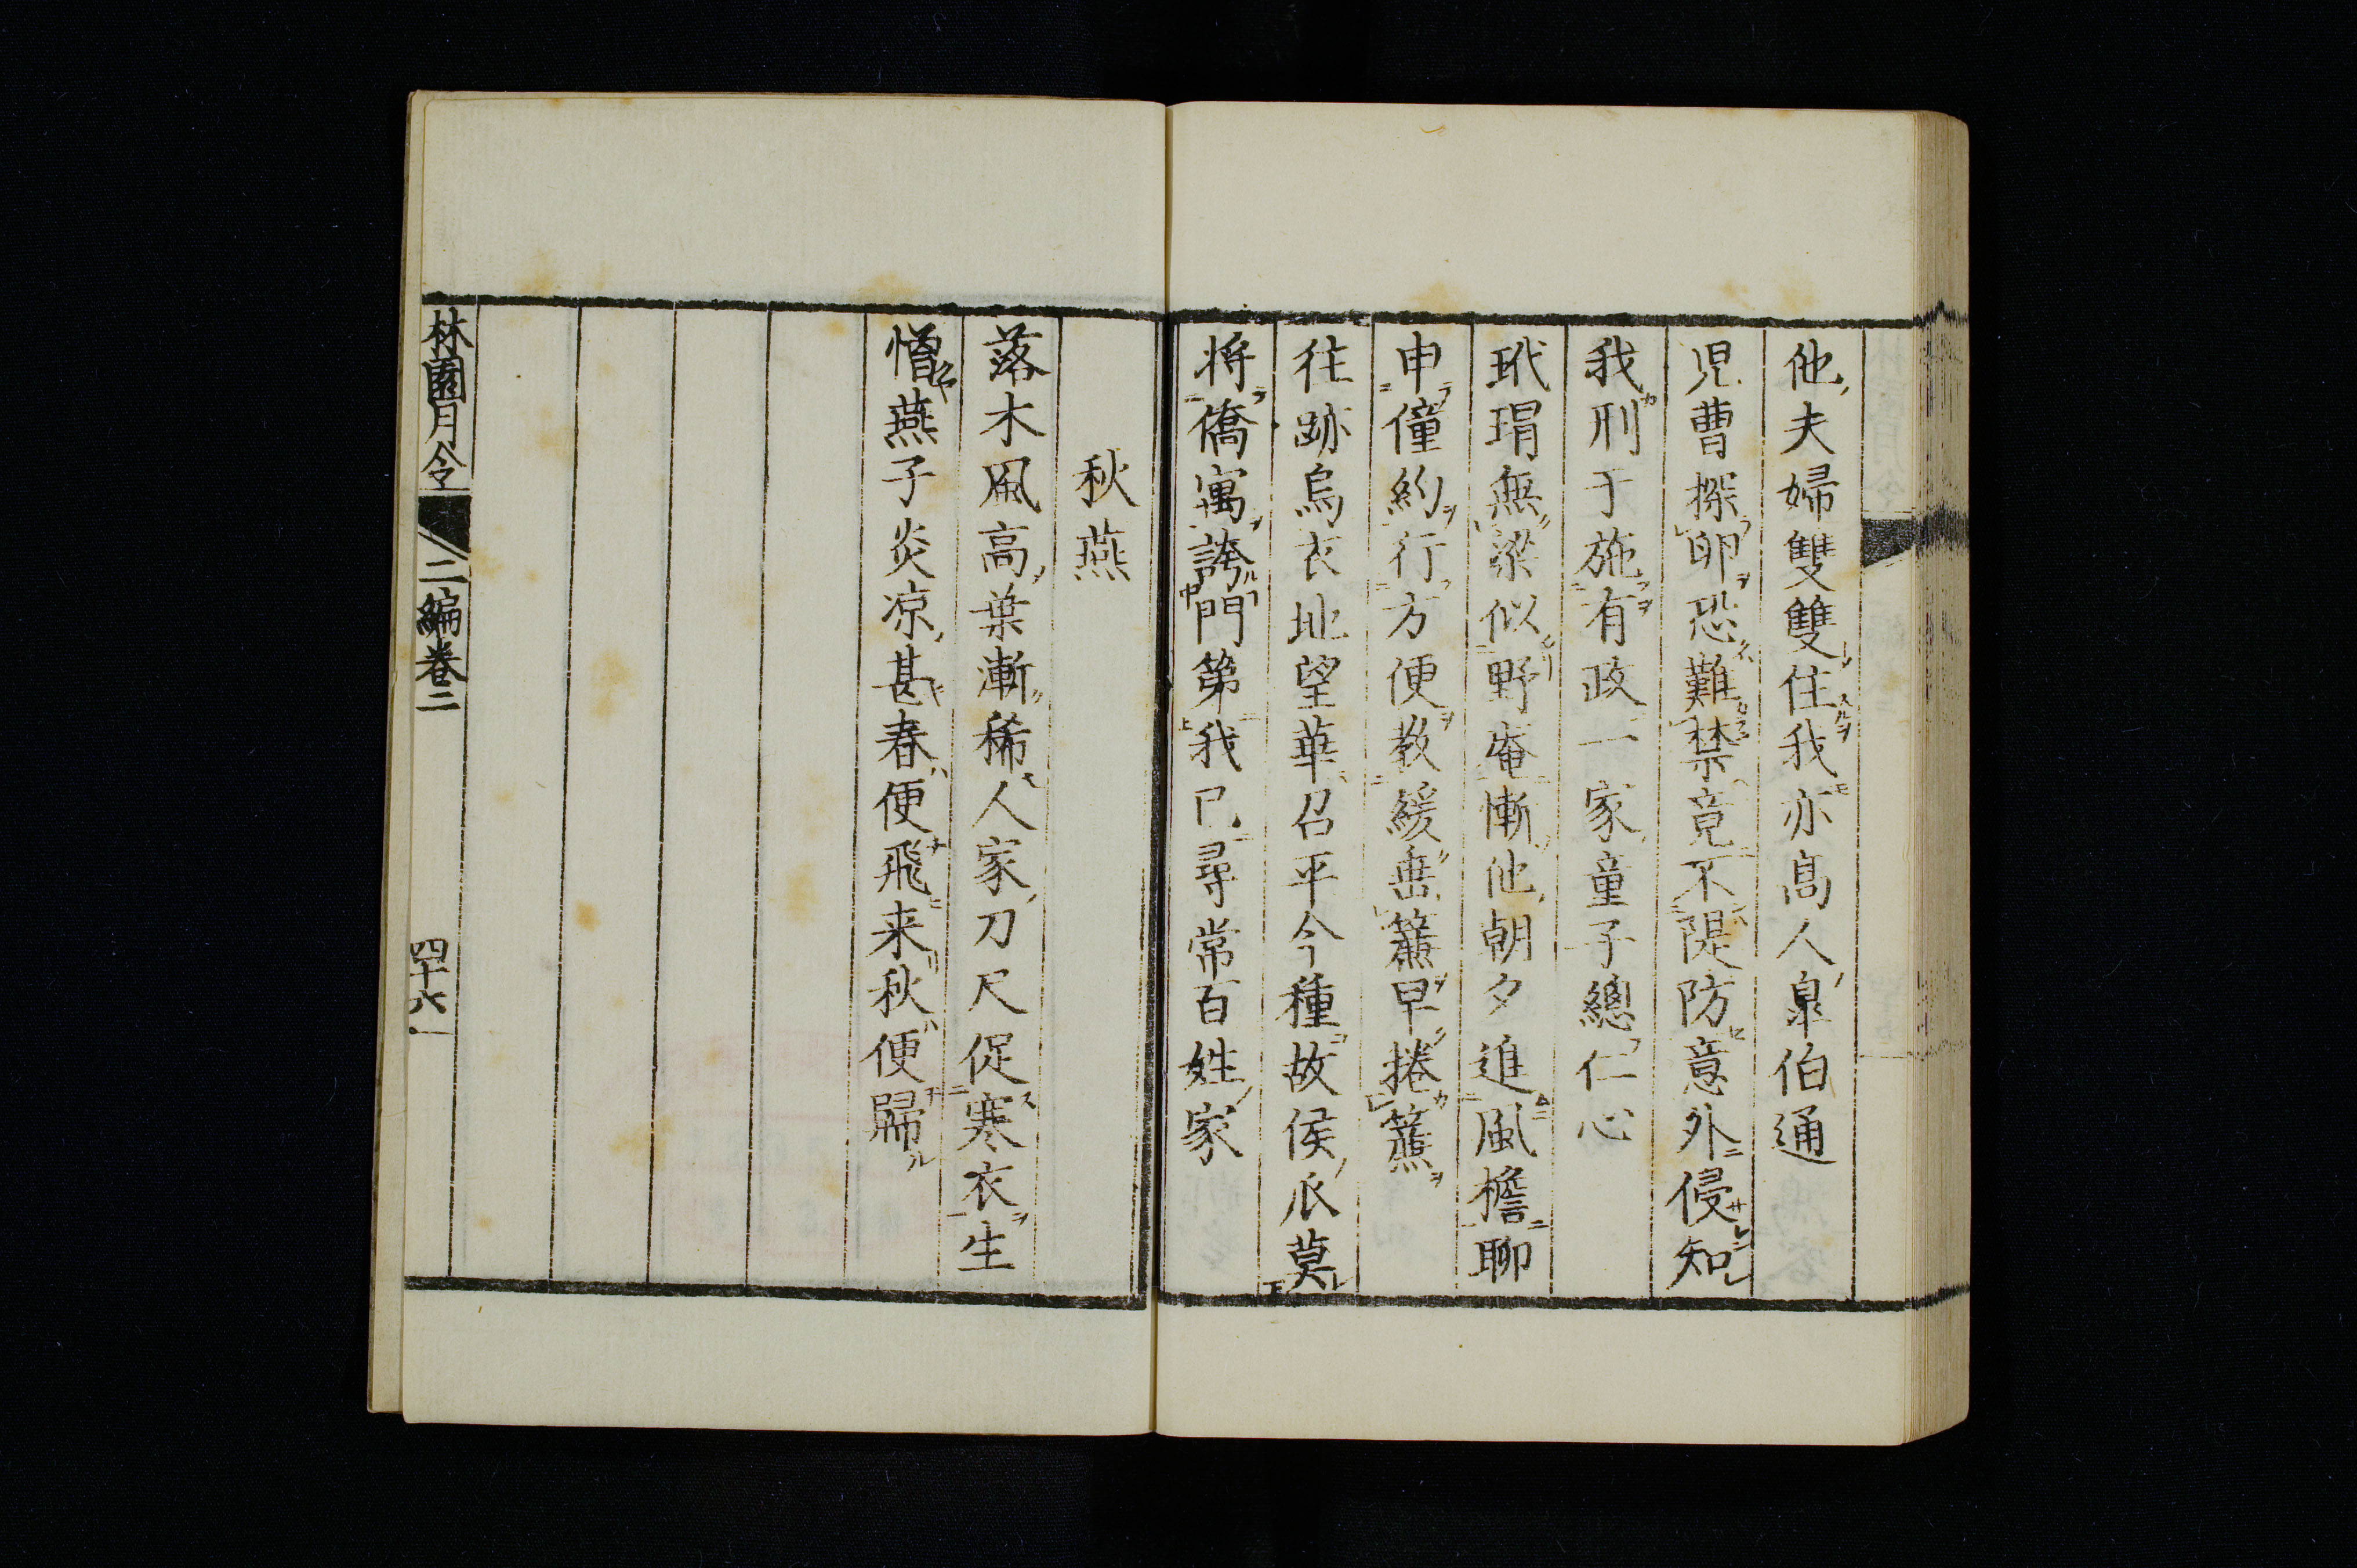 他夫婦雙雙住我亦高人皐伯通
児曹探卵恐難禁竟不隄防意外侵知
我刑于施有政一家童子總仁心
玳瑁無梁似野庵慚他朝夕進風檐聊
申僮約行方便教緩垂簾早捲簾
往跡烏衣址望華召平今種故侯瓜莫
将僑寓誇門第我已尋常百姓家
秋燕
落木風高葉漸稀人家刀尺促寒衣生
憎燕子炎凉甚春便飛来秋便歸
林園月令 二編卷二 四十六